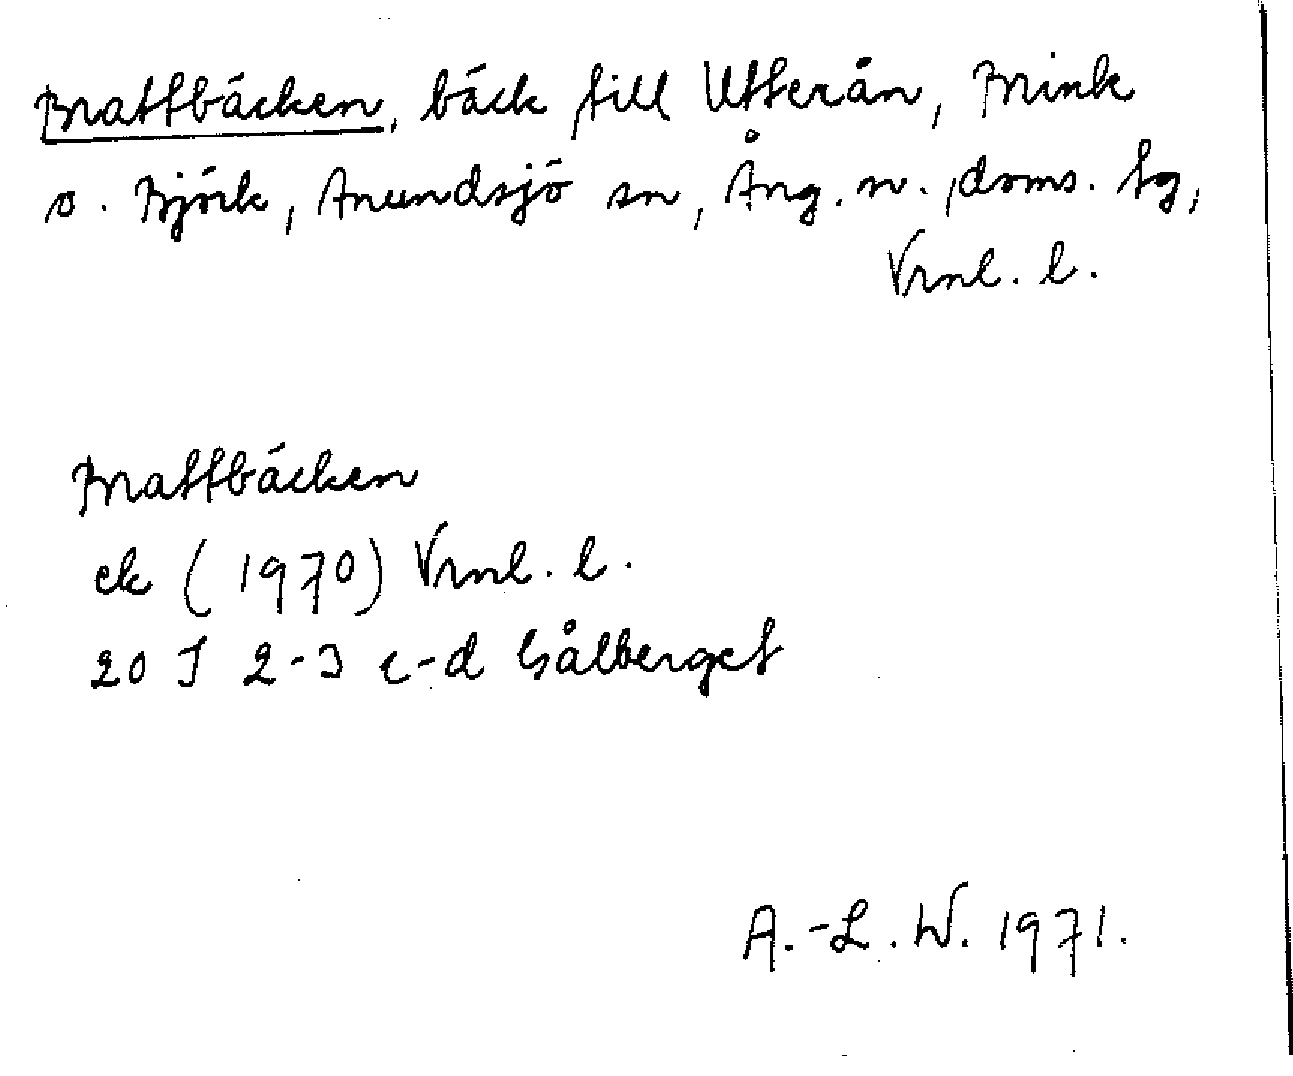 Brattbäcken, bäck till Utterån, Brink
o. Björk, Anundsjö sn, Ång. n. doms. tg,
Vrnl. l.
Brattbäcken
ek (1970) Vrnl. l.
20 I 2-3 c-d Gålberget
A.-L. W. 1971.